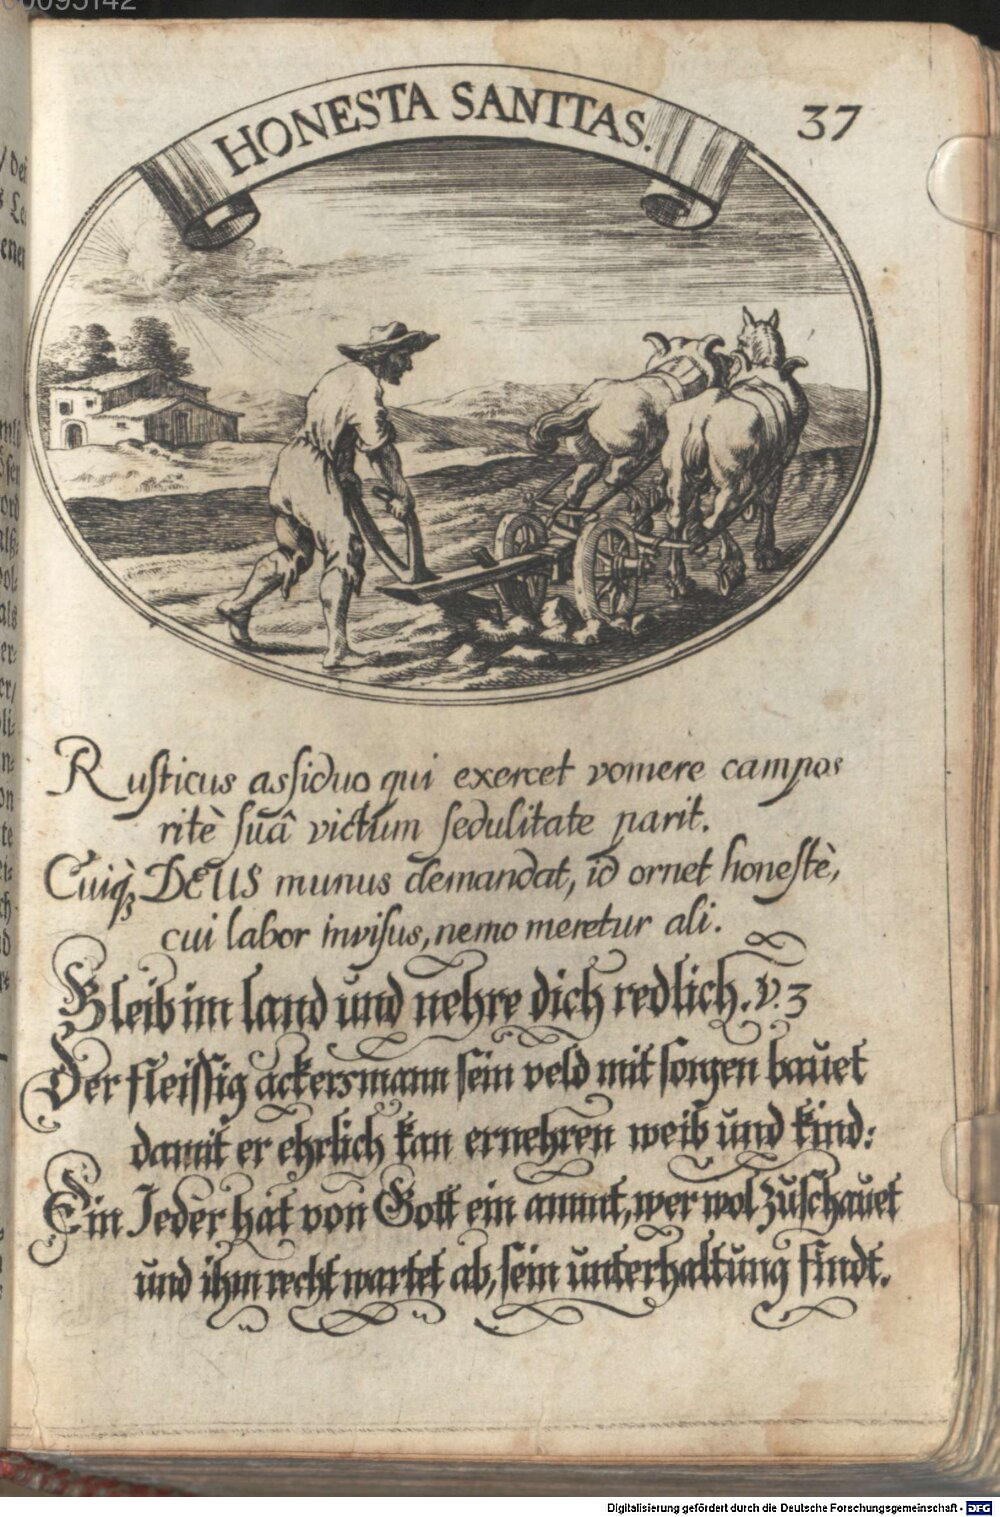 HONESTA SANITAS.
37
Rusticus assiduo qui exercet vomere campos
ritè suâ victum sedulitate parit.
Cuiq; DEUS munus demandat, id ornet honestè,
cui labor invisus, nemo meretur ali.
Bleib im land und nehre dich redlich. v. 3
Der fleissig ackersmann sein veld mit sorgen bauet
damit er ehrlich kan ernehren weib und kind:
Ein Jeder hat von Gott ein ammt, wer wol zuschauet
und ihm recht wartet ab, sein unterhaltung findt.
Digitalisierung gefördert durch die Deutsche Forschungsgemeinschaft - DFG